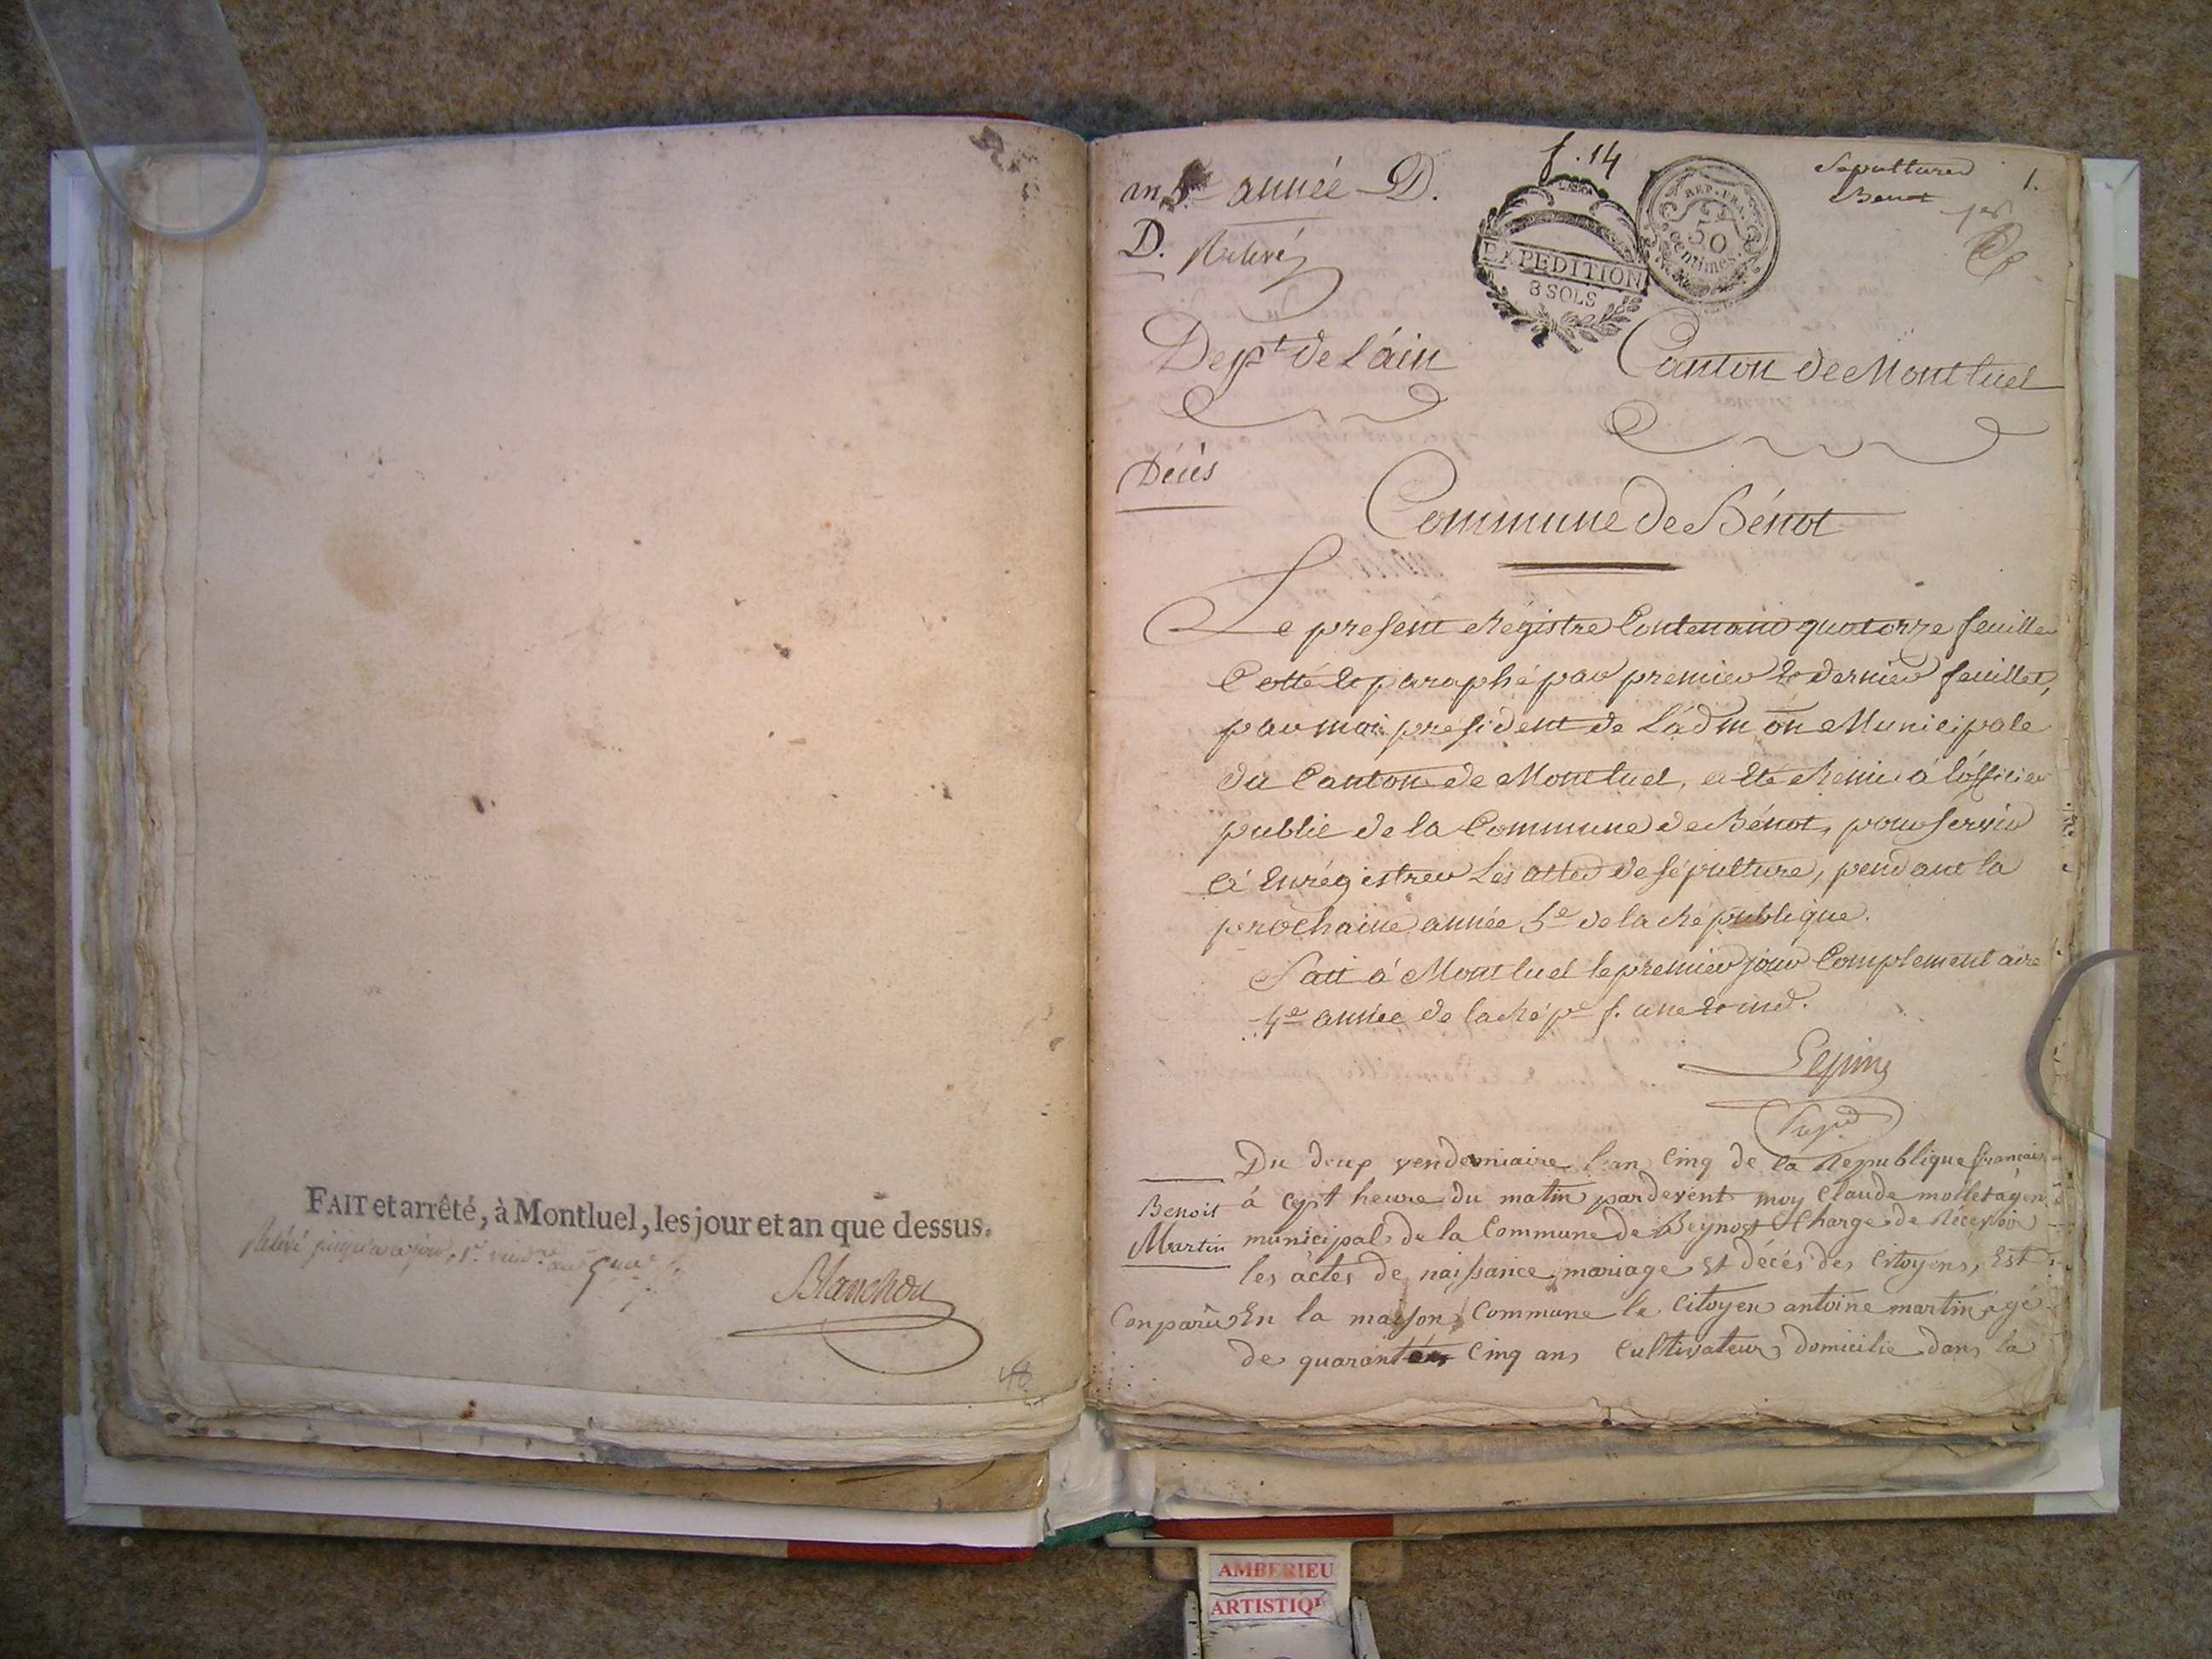 FAIT et arrêté, à Montluel, les jour et an que dessus.
Relévé jusqu'a ce jour, 1er vendre an 5me
Blanchon
48
an 5e année D.
f. 14
Sépultures
Benot
1.
1er
D. Relevé
EXPEDITION
8 SOLS
REP. FRA.
50
centimes.
Dept de l'áin
Canton de Montluel
Décès
Commune de Bénot
Le present Régistre Contenant quatorze feuillets
Cotté & paraphé par premier & dernier feuillet,
par moi président de L'adm on Municipale
du Canton de Montluel, a été Remis á l'officier
public de la Commune de Bénot, pour servir
á Enrégistrer Les actes de sépulture, pendant la
prochaine année 5e de la République.
Fait á Montluel le premier jour Complementaire
4e année de la Répe f. une & ind.
Lepine
Du deux vendemiaire l'an cinq de la Republique francaise
á cept heure du matin pardevent moy Claude mollet agen
Benoit
Martin
municipal de la Commune de Beynost Charge de Récevoir
les àctes de naissance mariage et décés des Citoyens, Est
Conparû En la maison Commune le Citoyen antoine martin ágé
de quarante Cinq ans Cultivateur domicilie dans la
AMBERIEU
ARTISTIQU